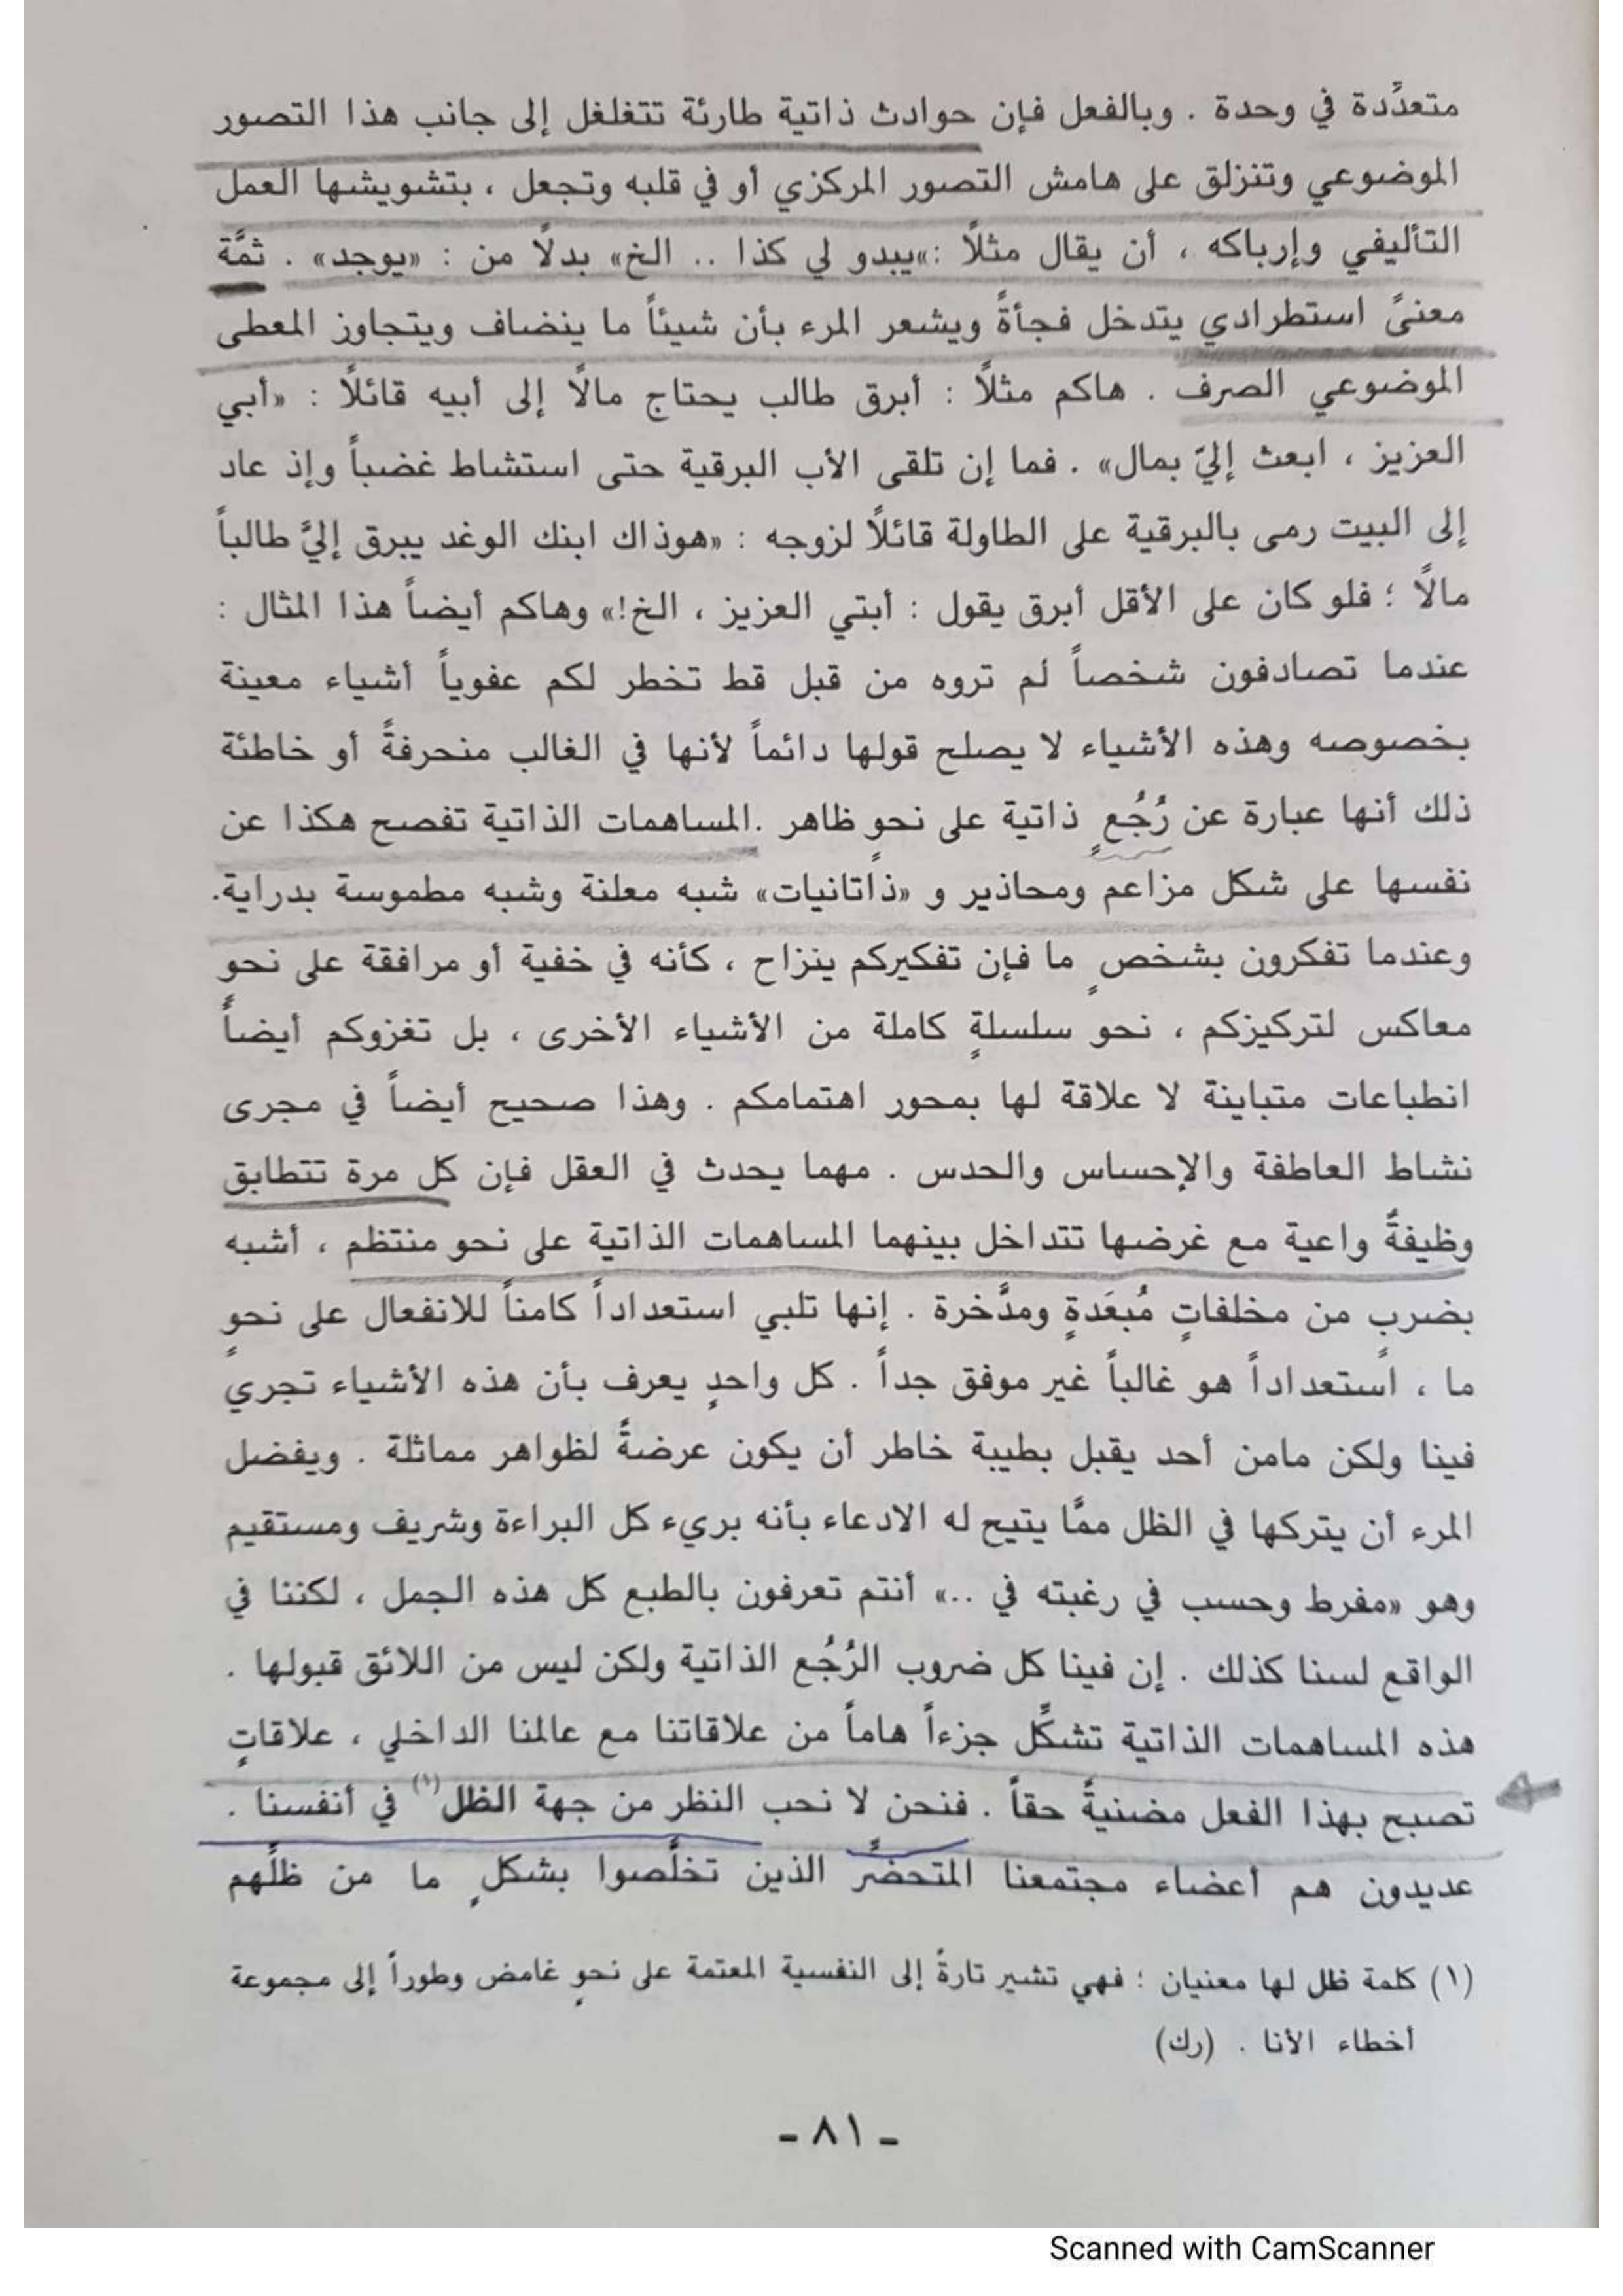 متعدِّدة في وحدة . وبالفعل فإن حوادث ذاتية طارئة تتغلغل إلى جانب هذا التصور
الموضوعي وتنزلق على هامش التصور المركزي أو في قلبه وتجعل ، بتشويشها العمل
التأليفي وإرباكه ، أن يقال مثلاً :«يبدو لي كذا .. الخ» بدلاً من : «يوجد» . ثمَّة
معنىً استطرادي يتدخل فجأةً ويشعر المرء بأن شيئاً ما ينضاف ويتجاوز المعطى
الموضوعي الصرف . هاكم مثلاً : أبرق طالب يحتاج مالاً إلى أبيه قائلاً : «أبي
العزيز ، ابعث إليّ بمال» . فما إن تلقى الأب البرقية حتى استشاط غضباً وإذ عاد
إلى البيت رمى بالبرقية على الطاولة قائلاً لزوجه : «هوذاك ابنك الوغد يبرق إليَّ طالباً
مالاً ؛ فلو كان على الأقل أبرق يقول : أبتي العزيز ، الخ!» وهاكم أيضاً هذا المثال :
عندما تصادفون شخصاً لم تروه من قبل قط تخطر لكم عفوياً أشياء معينة
بخصوصه وهذه الأشياء لا يصلح قولها دائماً لأنها في الغالب منحرفةً أو خاطئة
ذلك أنها عبارة عن رُجُعٍ ذاتية على نحوٍ ظاهر .المساهمات الذاتية تفصح هكذا عن
نفسها على شكل مزاعم ومحاذير و «ذاتانيات» شبه معلنة وشبه مطموسة بدراية.
وعندما تفكرون بشخصٍ ما فإن تفكيركم ينزاح ، كأنه في خفية أو مرافقة على نحو
معاكس لتركيزكم ، نحو سلسلةٍ كاملة من الأشياء الأخرى ، بل تغزوكم أيضاً
انطباعات متباينة لا علاقة لها بمحور اهتمامكم . وهذا صحيح أيضاً في مجرى
نشاط العاطفة والإحساس والحدس . مهما يحدث في العقل فإن كل مرة تتطابق
وظيفةٌ واعية مع غرضها تتداخل بينهما المساهمات الذاتية على نحو منتظم ، أشبه
بضربٍ من مخلفاتٍ مُبعَدةٍ ومدَّخرة . إنها تلبي استعداداً كامناً للانفعال على نحوٍ
ما ، استعداداً هو غالباً غير موفق جداً . كل واحدٍ يعرف بأن هذه الأشياء تجري
فينا ولكن مامن أحد يقبل بطيبة خاطر أن يكون عرضةً لظواهر مماثلة . ويفضل
المرء أن يتركها في الظل ممَّا يتيح له الادعاء بأنه بريء كل البراءة وشريف ومستقيم
وهو «مفرط وحسب في رغبته في ..» أنتم تعرفون بالطبع كل هذه الجمل ، لكننا في
الواقع لسنا كذلك . إن فينا كل ضروب الرُجُع الذاتية ولكن ليس من اللائق قبولها .
هذه المساهمات الذاتية تشكِّل جزءاً هاماً من علاقاتنا مع عالمنا الداخلي ، علاقاتٍ
تصبح بهذا الفعل مضنيةً حقاً . فنحن لا نحب النظر من جهة الظل(١) في أنفسنا .
عديدون هم أعضاء مجتمعنا المتحضِّر الذين تخلَّصوا بشكلٍ ما من ظلِّهم
(١) كلمة ظل لها معنيان ؛ فهي تشير تارةً إلى النفسية المعتمة على نحوٍ غامض وطوراً إلى مجموعة
أخطاء الأنا . (رك)
- ٨١ -
Scanned with CamScanner